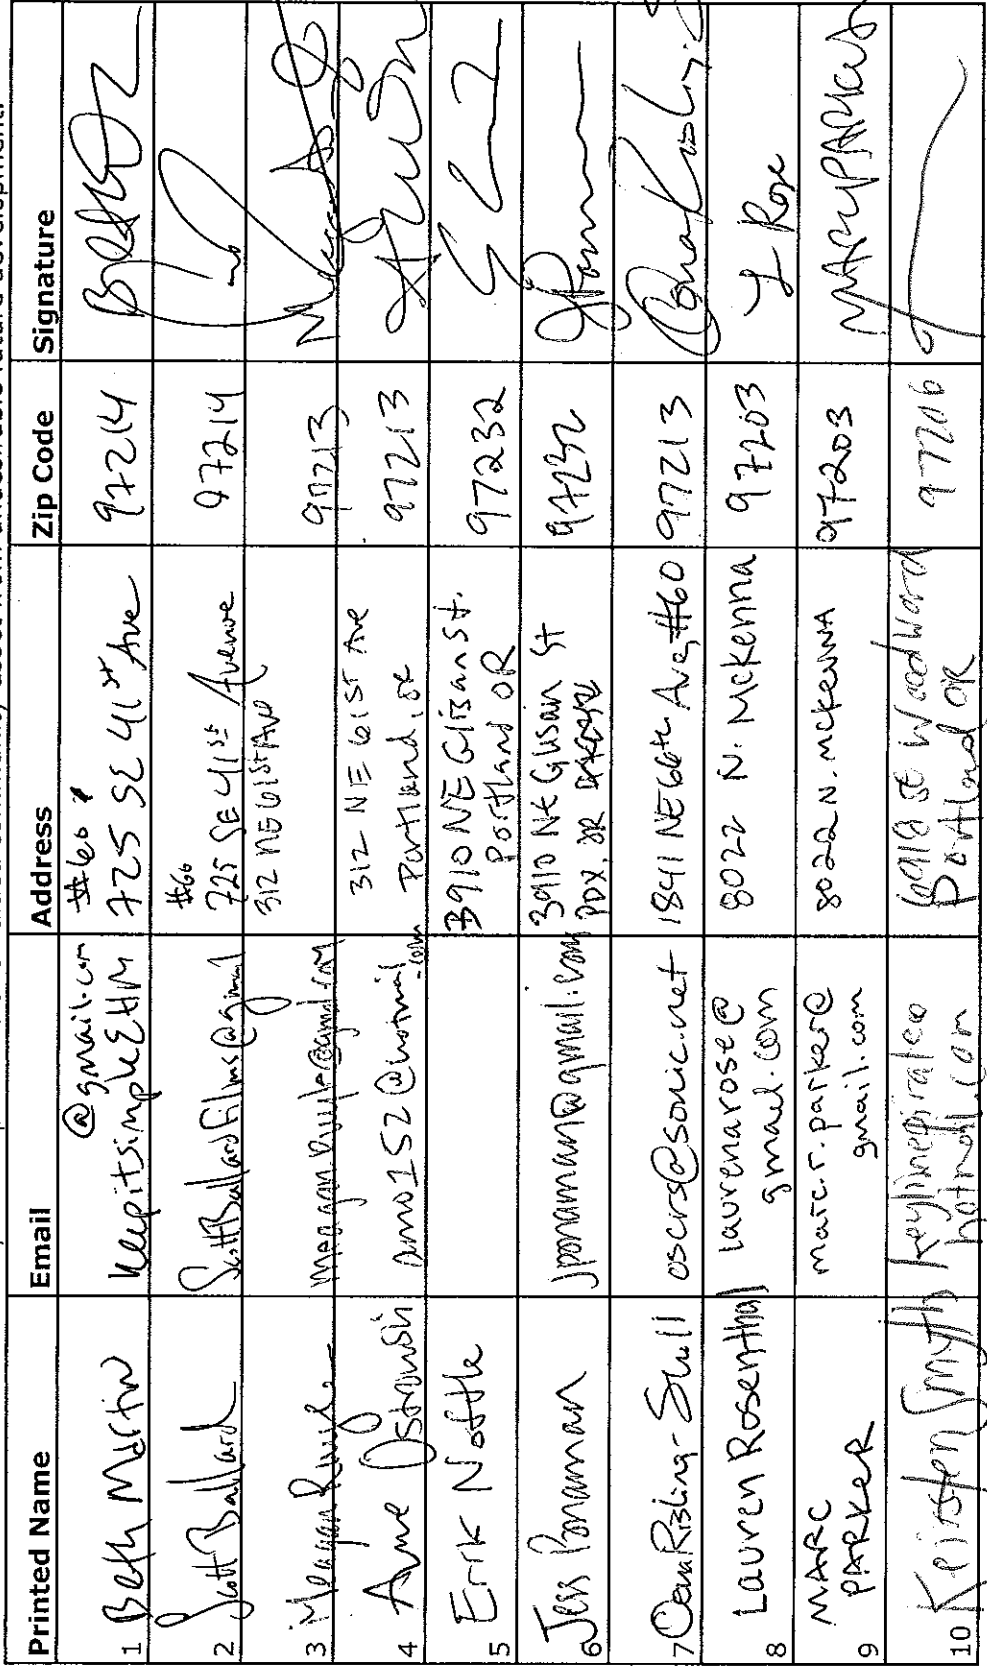 Printed Name Email Address Zip Code Signature
1 Beth Martin keepitsimpleEHM @gmail.com #60 725 SE 41st Ave 97214
2 Scott Ballard ScottBallardfilms@gmail #60 725 SE 41st Avenue 97214
3 Meagan 312 NE 61st Ave 97213
4 Ame amo152@hotmail.com 312 NE 61ST Ave Portland OR 97213
5 Erik Nottle 3910 NE Glisan St. Portland OR 97232
6 Jess Ponaman jponaman@gmail.com 3910 NE Glisan St PDX, OR 97232
7 Risling-Sholl oscirs@sonic.net 1841 NE 66th Ave #60 97213
8 Lauren Rosenthal laurenarose@ gmail.com 8022 N. McKenna 97203 L Rose
9 MARC PARKER marc.r.parker@ gmail.com 8022 N. McKENNA 97203 MARC PARKER
10 Keirsten Smyth keylimepirate@ hotmail.com 6918 SE Woodward Portland OR 97206